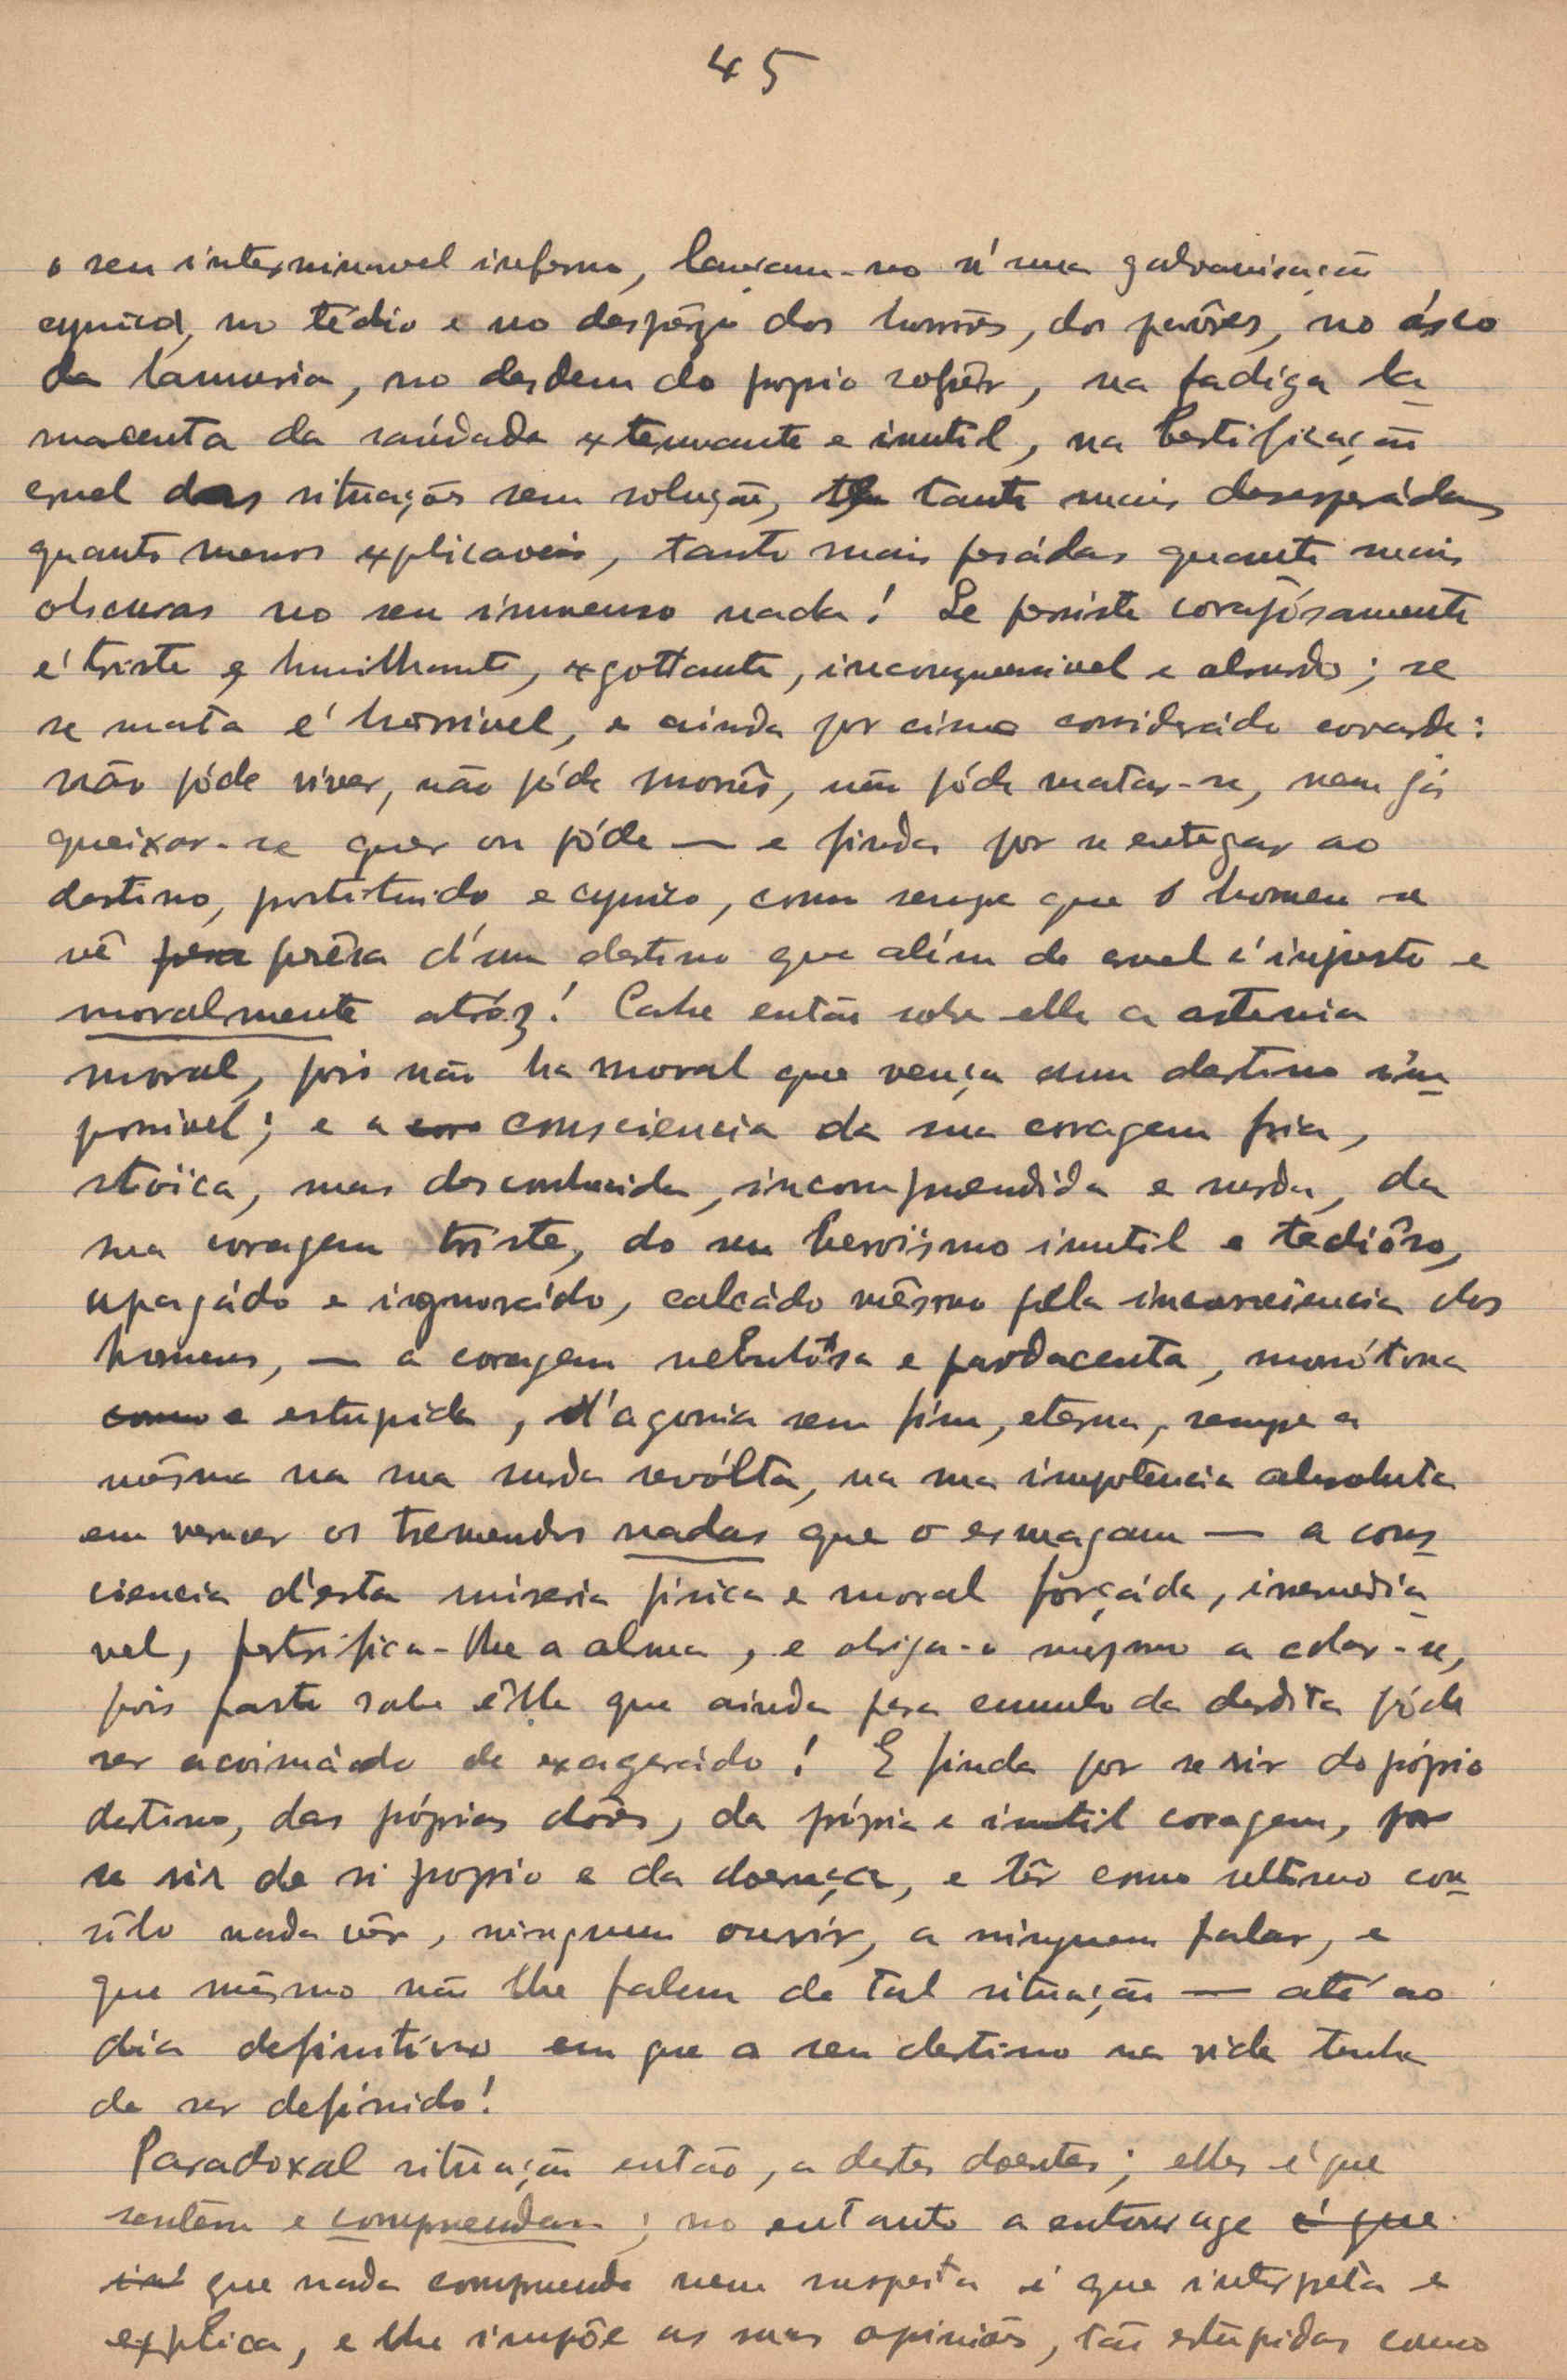 45
o seu interminavel inferno, lançam-no n'uma galvanisação
cynica, no tédio e no despôjo dos horrôres, dos pavôres, no ásco
da lamuria, no desdem do proprio sofrêr, na fadiga la-
macenta da saúdade extenuante e inutil, na bestificação
cruel das situações sem solução, tanto mais desesperádas
quanto menos explicaveis, tanto mais pesádas quanto mais
obscuras no seu immenso nada! Se persiste corajósamente
é triste e humilhante, exgottante, incompreensivel e absurdo; se
se mata é horrivel, e ainda por cima consideràdo covarde:
não póde viver, não póde morrêr, não póde matar-se, nem já
queixar-se quer ou póde — e finda por se entregar ao
destino, prostituido e cynico, como sempre que o homem se
vê prêsa d'um destino que além de cruel é injusto e
moralmente atróz! Cahe então sobre elle a astenia
moral, pois não ha moral que vença um destino im-
possivel; e a consciencia da sua coragem fria,
stoïca, mas desconhecida, incompreendida e surda, da
sua coragem triste, do seu heroïsmo inutil e tediôso,
apagádo e ignorádo, calcádo mêsmo pela inconsciencia dos
homens, — a coragem nebulósa e pardacenta, monótona
e estupida, d'agonia sem fim, eterna, sempre a
mêsma na sua surda revólta, na sua impotencia absoluta
em vencer os tremendos nadas que o esmagam — a cons-
ciencia d'esta miseria fisica e moral forçáda, irremedia-
vel, petrifica-lhe a alma, e obriga-o mesmo a calar-se,
pois farto sabe êlle que ainda para cumulo da desdita póde
ser acoimàdo de exagerádo! E finda por se rir do próprio
destino, das próprias dôres, da própria e inutil coragem, por
se rir de si proprio e da doença, e têr como ultimo con-
sôlo nada vêr, ninguem ouvir, a ninguem falar, e
que mêsmo não lhe falem de tal situação — até ao
dia definitivo em que o seu destino na vida tenha
de ser definido!
Paradoxal situação então, a destes doentes; elles é que
sentem e comprendem; no entanto a entourage é que
que nada compreende nem suspeita é que interpreta e
explica, e lhe impõe as suas opiniões, tão estupidas como